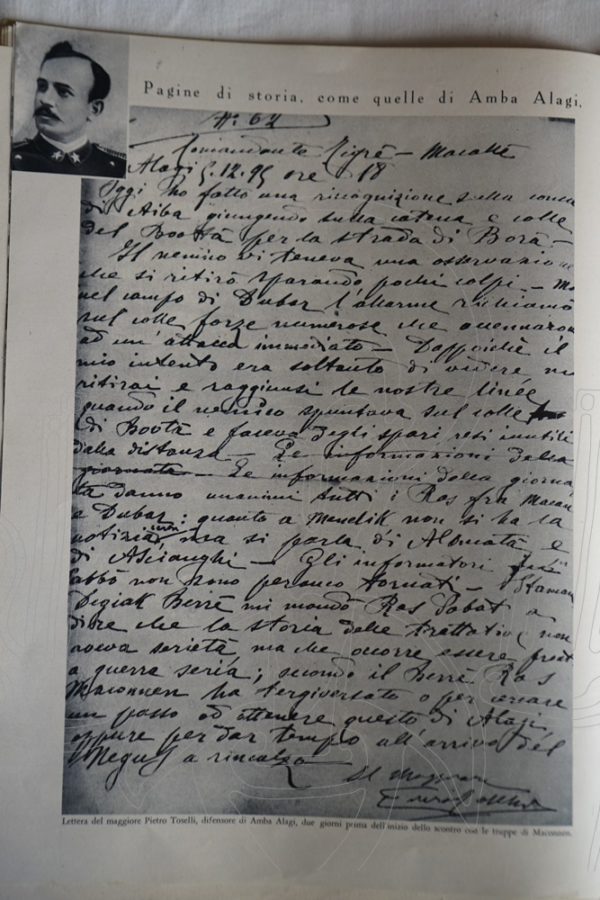 Pagine di storia, come quelle di Amba Alagi,
N. 62
Comando Tigrè – Macallè
Alagi 5.12.95 ore 18
Oggi ho fatto una ricognizione sulla conca
di Aiba giungendo sulla catena e colle
del Bootà per la strada di Borà –
Il nemico vi teneva una osservazione
che si ritirò sparando pochi colpi – Ma
nel campo di Dubar l'allarme richiamò
sul colle forze numerose che accennarono
ad un'attacco immediato – Dappoichè il
mio intento era soltanto di vedere mi
ritirai e raggiunsi le nostre linee
quando il nemico spuntava sul colle
di Bootà e faceva degli spari resi inutili
dalla distanza – Le informazioni della
giornata – Le informazioni della giorna
ta danno unanimi tutti i Ras fra
a Dubar; quanto a Menelik non si ha la
notizia ma si parla di Alomatà e
di Ascianghi – Gli informatori
non sono peranco tornati –
Degiak Berrè mi mandò Ras Sabat a
dire che la storia delle trattative non
aveva serietà ma che occorre essere pronti
a guerra seria; secondo il Berrè Ras
Maconnen ha tergiversato o per cercare
un passo od ottenere questo di Alagi,
oppure per dar tempo all'arrivo del
Negus a rincalzo
Il Maggiore
Lettera del maggiore Pietro Toselli, difensore di Amba Alagi, due giorni prima dell'inizio dello scontro con le truppe di Maconnen.